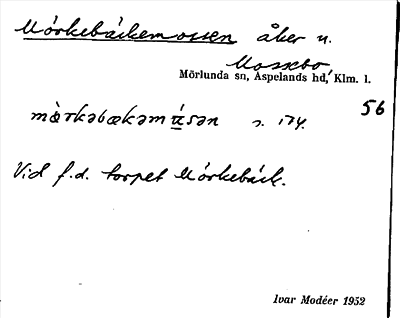 Mörkebäckemossen åker n.
Mossebo
Mörlunda sn, Aspelands hd, Klm. l.
56
mɑ̀rkəbækəmɷ́sən s. 174.
Vid f.d. torpet Mörkebäck.
Ivar Modéer 1952